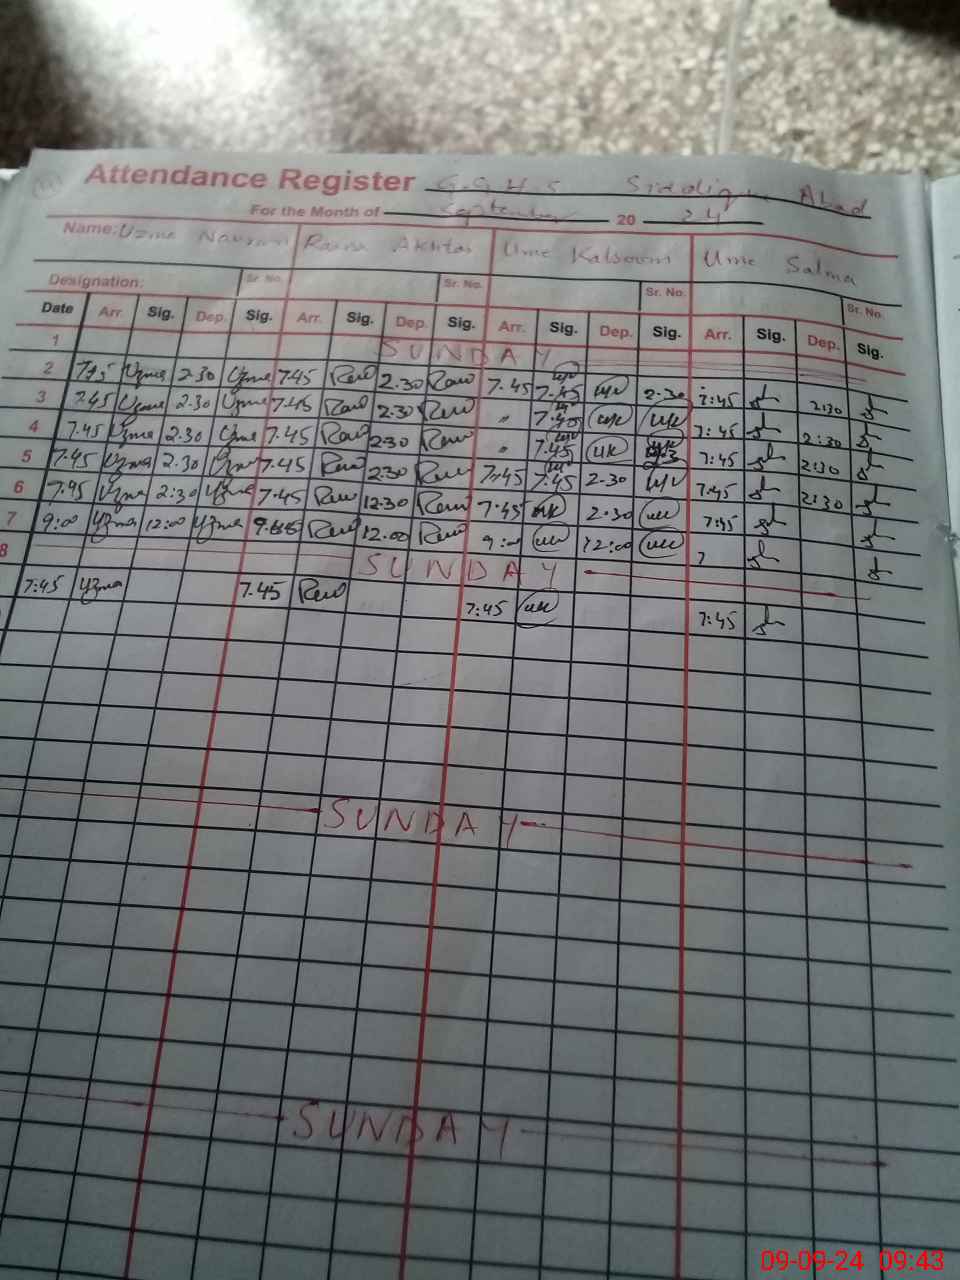 Attendance Register G.G.H.S Siddiqia Abad
For the Month of September 20 24
Name: Uzma Raina Akhtar Ume Kalsoom Ume Salma
Designation: Sr. No. Sr. No. Sr. No. Sr. No.
Date Arr. Sig. Dep. Sig. Arr. Sig. Dep. Sig. Arr. Sig. Dep. Sig. Arr. Sig. Dep. Sig.
1 SUNDAY
2 7.45 Uzma 2.30 Uzma 7.45 2.30 7.45 7.45 UK 2.30 7:45 2:30
3 7.45 Uzma 2.30 Uzma 7.45 2.30 " 7.45 UK UK 7:45 2:30
4 7.45 Uzma 2.30 Uzma 7.45 2.30 " 7.45 UK 7:45 2:30
5 7.45 Uzma 2.30 Uzma 7.45 2.30 7.45 7.45 2.30 UK 7:45 2:30
6 7.45 Uzma 2:30 Uzma 7.45 12.30 7.45 UK 2.30 UK 7:45
7 9:00 Uzma 12:00 Uzma 12.00 9:00 UK 12:00 UK 7
8 SUNDAY
7:45 Uzma 7.45 7:45 UK 7:45
SUNDAY
SUNDAY
09-09-24 09:43